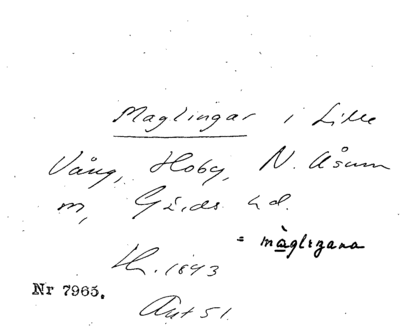 Maglingar i Lille
Vång, Hoby, N. Åsum
m, Gärds hd.
= màgligana
Lh. 1843
Nr 7965.
Akt 51.